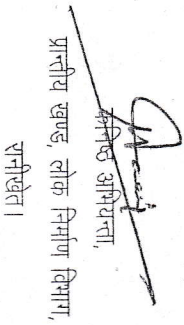 कनिष्ठ अभियन्ता,
प्रान्तीय खण्ड, लोक निर्माण विभाग,
रानीखेत।